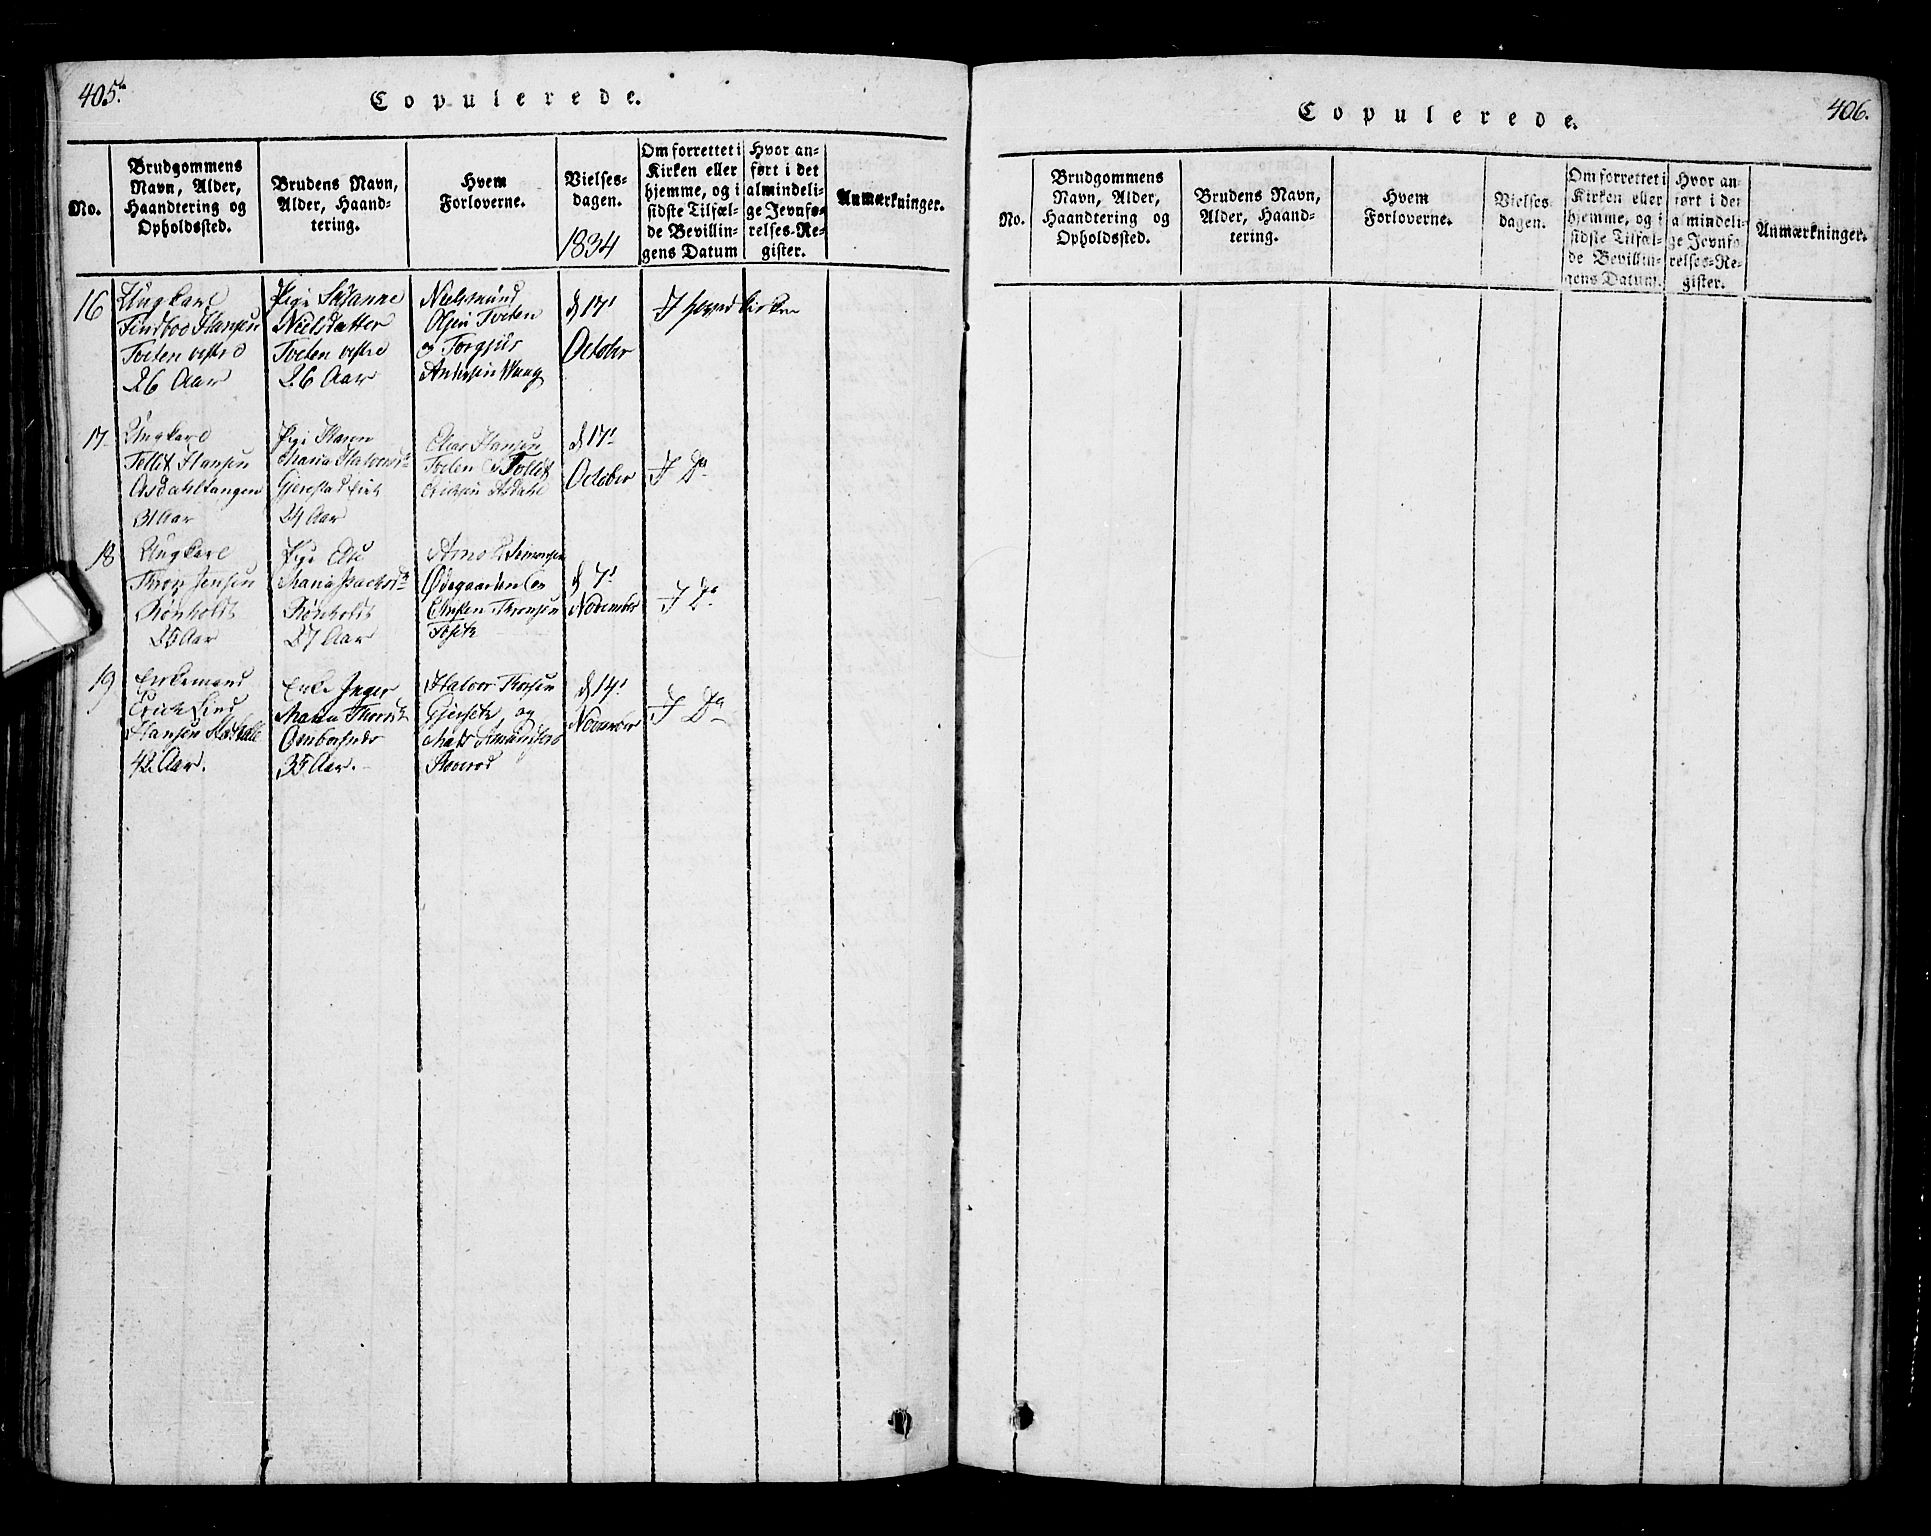 405.
Copulerede.
No.
Brudgommens
Navn, Alder,
Haandtering og
Opholdssted.
Brudens Navn,
Alder, Haand-
tering.
Hvem
Forloverne.
Vielses-
dagen.
1834
Om forrettet i
Kirken eller
hjemme, og i
sidste Tilfæl-
de Bevillin-
gens Datum
Hvor an-
ført i det
almindeli-
ge Jevnfø-
relses-Re-
gister.
Anmærkninger.
16
Ungkarl
Findboe Hansen
Tveten vestre
26 Aar
Pige Susanne
Nielsdatter
Tveten vestre
26 Aar
Nielsmund
Olsen Tveten
og Torgjus
Andersen Vaag
d 17'
October
I Hovedkirken
17
Ungkarl
Tellef Hansen
Asdahltangen
31 Aar
Pige Karen
Maria Halvorsd
Gjerestad
24 Aar
Olav Hansen
Tveten Tollef
Ericksen Asdahl
d 17'
October
I Do
18
Ungkarl
Thron Jensen
Rønholdt
25 Aar
Pige Else
Maria Jsacksd
Rønholdt
27 Aar
Arne Simonsen
Ødegaarden og
Christen Thronsen
d 7'
November
I Do
19
Enkemand
Erick Lind
Hansen
42 Aar.
Enke Inger
Maria Thorsd
35 Aar.
Halvor Thorsen
og
Mads Amundsen
d 14'
November
I Do
406.
Copulerede.
No.
Brudgommens
Navn, Alder,
Haandtering og
Opholdssted.
Brudens Navn,
Alder, Haand-
tering.
Hvem
Forloverne.
Vielses
dagen.
Om forrettet i
Kirken eller
hjemme, og i
sidste Tilfæl-
de Bevillin-
gens Datum.
Hvor an-
ført i det
almindeli-
ge Jevnfø-
relses-Re-
gister.
Anmærkninger.